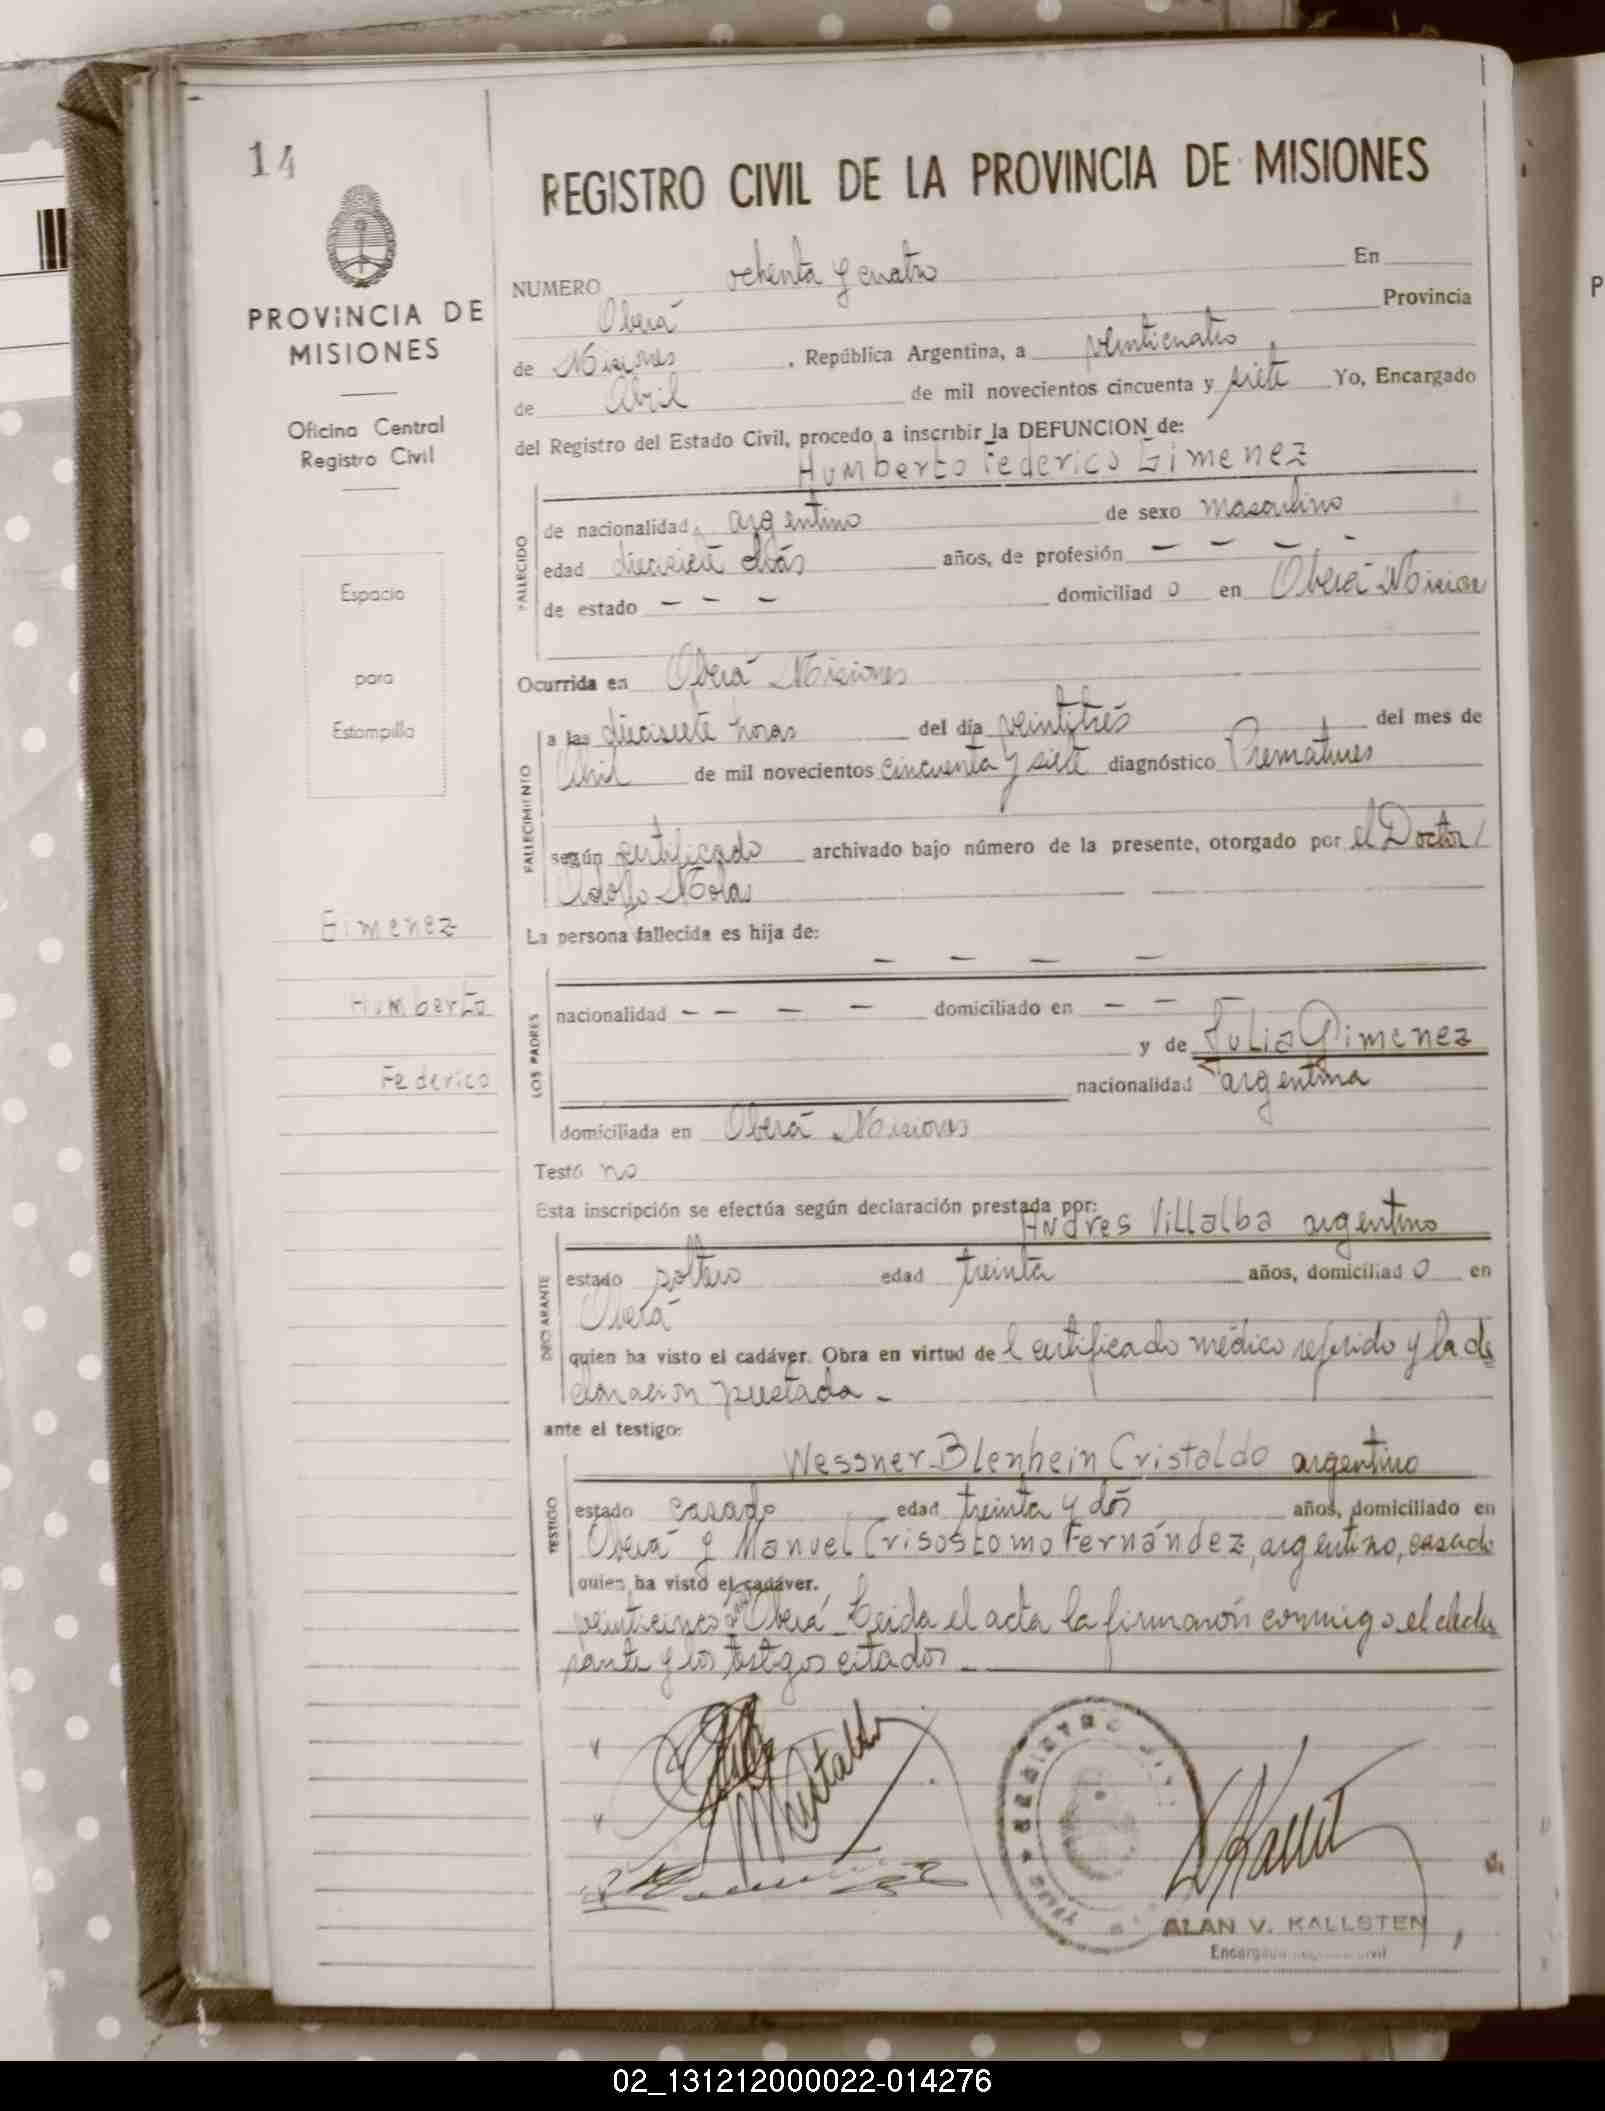 14
REGISTRO CIVIL DE LA PROVINCIA DE MISIONES
PROVINCIA DE
MISIONES
Oficina Central
Registro Civil
Espacio
para
Estampilla
Gimenez
Humberto
Federico
NUMERO ochenta y cuatro En
Oberá Provincia
de Misiones, República Argentina, a veinticuatro
de Abril de mil novecientos cincuenta y siete Yo, Encargado
del Registro del Estado Civil, procedo a inscribir la DEFUNCION de:
Humberto Federico Gimenez
FALLECIDO
de nacionalidad argentino de sexo masculino
edad diecisiete días años, de profesión - - - -
de estado - - - domiciliad o en Oberá Mision
Ocurrida en Oberá Misiones
FALLECIMIENTO
a las diecisiete horas del día veintitrés del mes de
Abril de mil novecientos cincuenta y siete diagnóstico Prematures
según certificado archivado bajo número de la presente, otorgado por el Doctor
Adolfo Molas
La persona fallecida es hija de:
- - - -
LOS PADRES
nacionalidad - - - - domiciliado en - -
y de Julia Gimenez
nacionalidad argentina
domiciliada en Oberá Misiones
Testó no
Esta inscripción se efectúa según declaración prestada por:
Andres Villalba argentino
DECLARANTE
estado soltero edad treinta años, domiciliad o en
Oberá
quien ha visto el cadáver. Obra en virtud de l certificado médico referido y la de
claracion prestada -
ante el testigo:
Wessner Blenhein Cristaldo argentino
TESTIGO
estado casado edad treinta y dós años, domiciliado en
Oberá y Manuel Crisostomo Fernández, argentino, casado
quien ha visto el cadáver.
veinticinco Oberá Leida el acta la firmarón conmigo el decla
rante y los testigos citados -
REGISTRO
ALAN V. KALLSTEN
Encargado Registro Civil
02_131212000022-014276